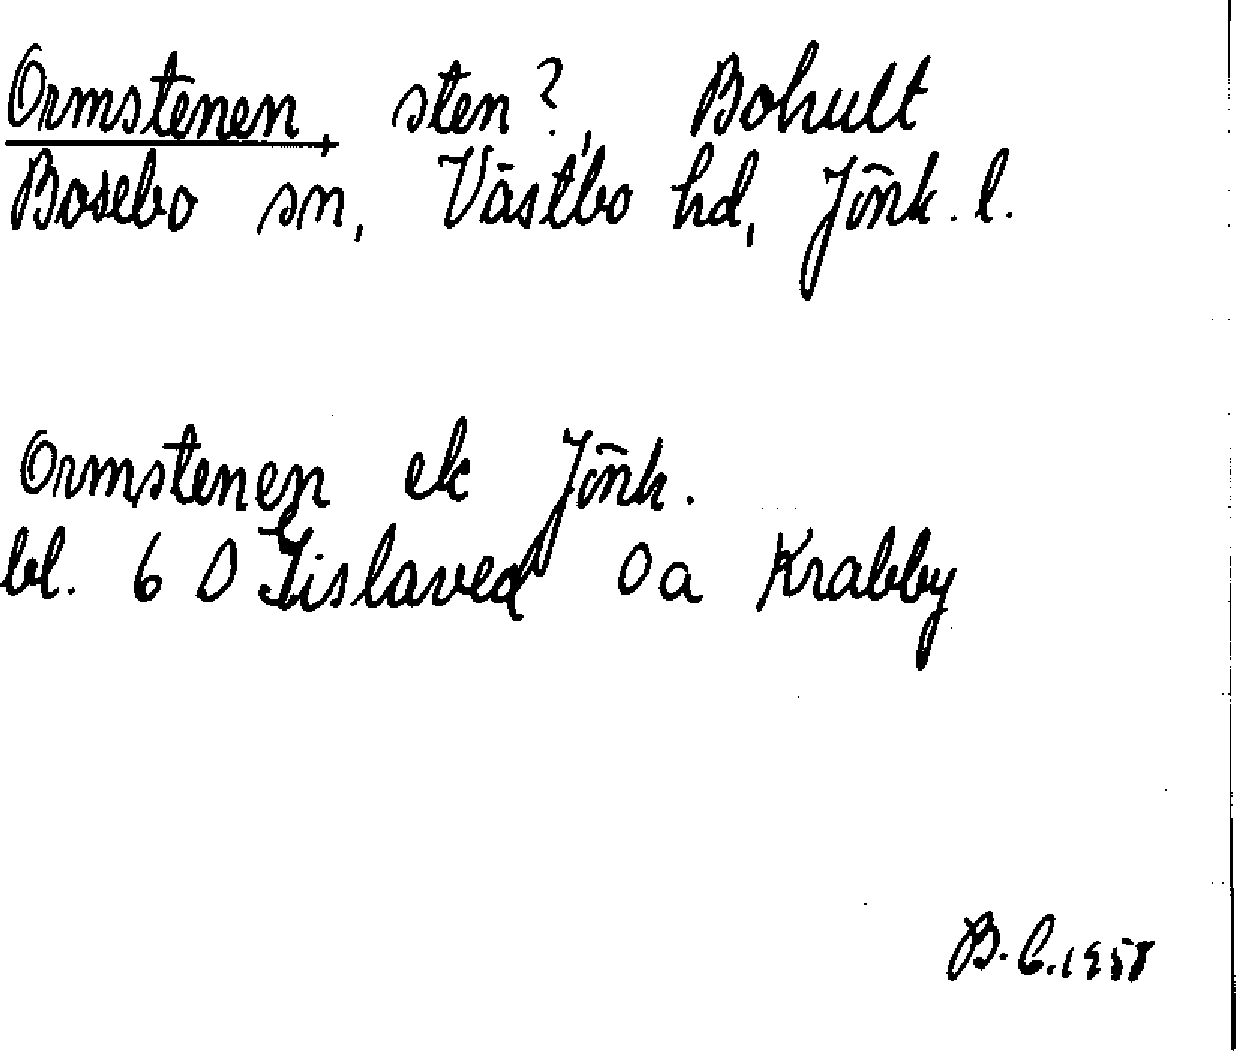 Ormstenen, sten?, Bohult
Bosebo sn, Västbo hd, Jönk. l.
Ormstenen ek Jönk.
bl. 6 D Gislaved 0a Krabby
B.C. 1958